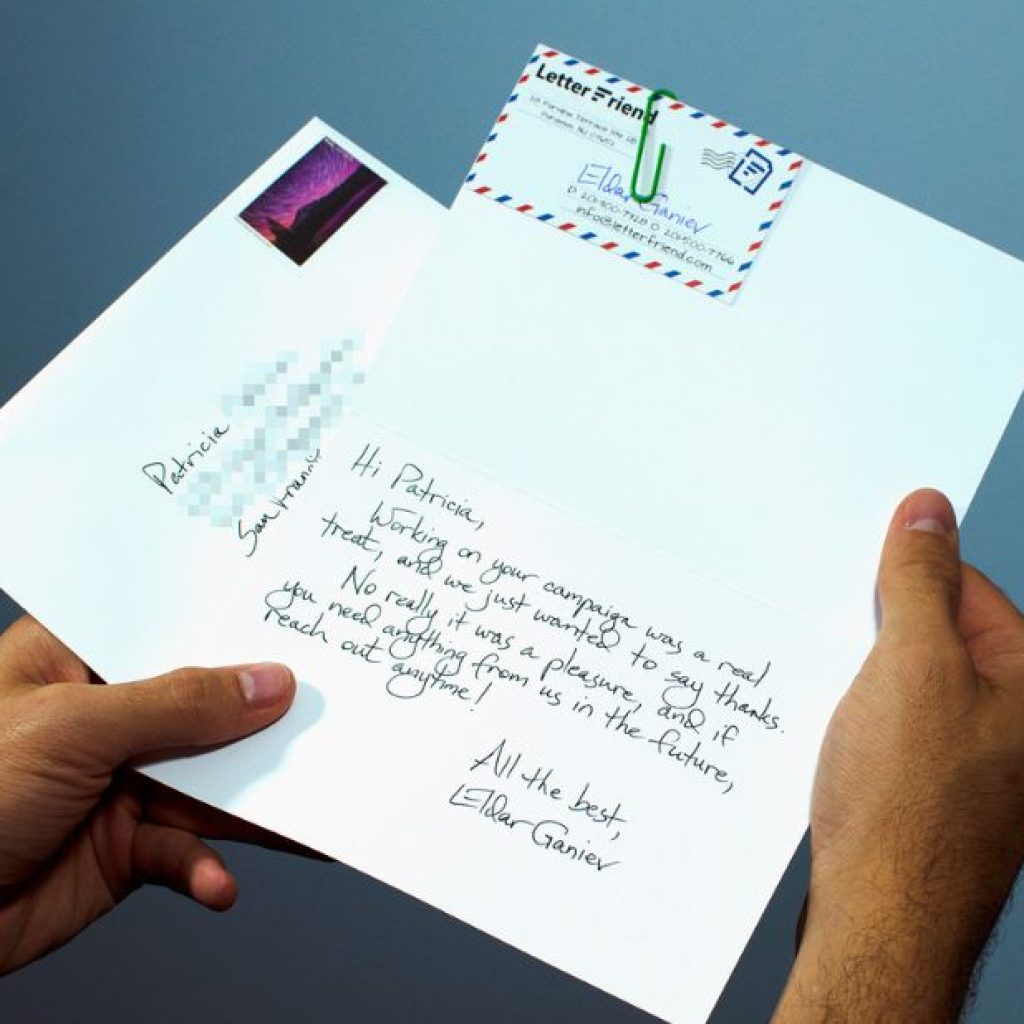 Letter Friend
Paramus, NJ 07652
Eldar Ganiev
info@letterfriend.com
Patricia
San Franci
Hi Patricia,
Working on your campaign was a real
treat, and we just wanted to say thanks.
No really it was a pleasure, and if
you need anything from us in the future,
reach out anytime!
All the best,
Eldar Ganiev